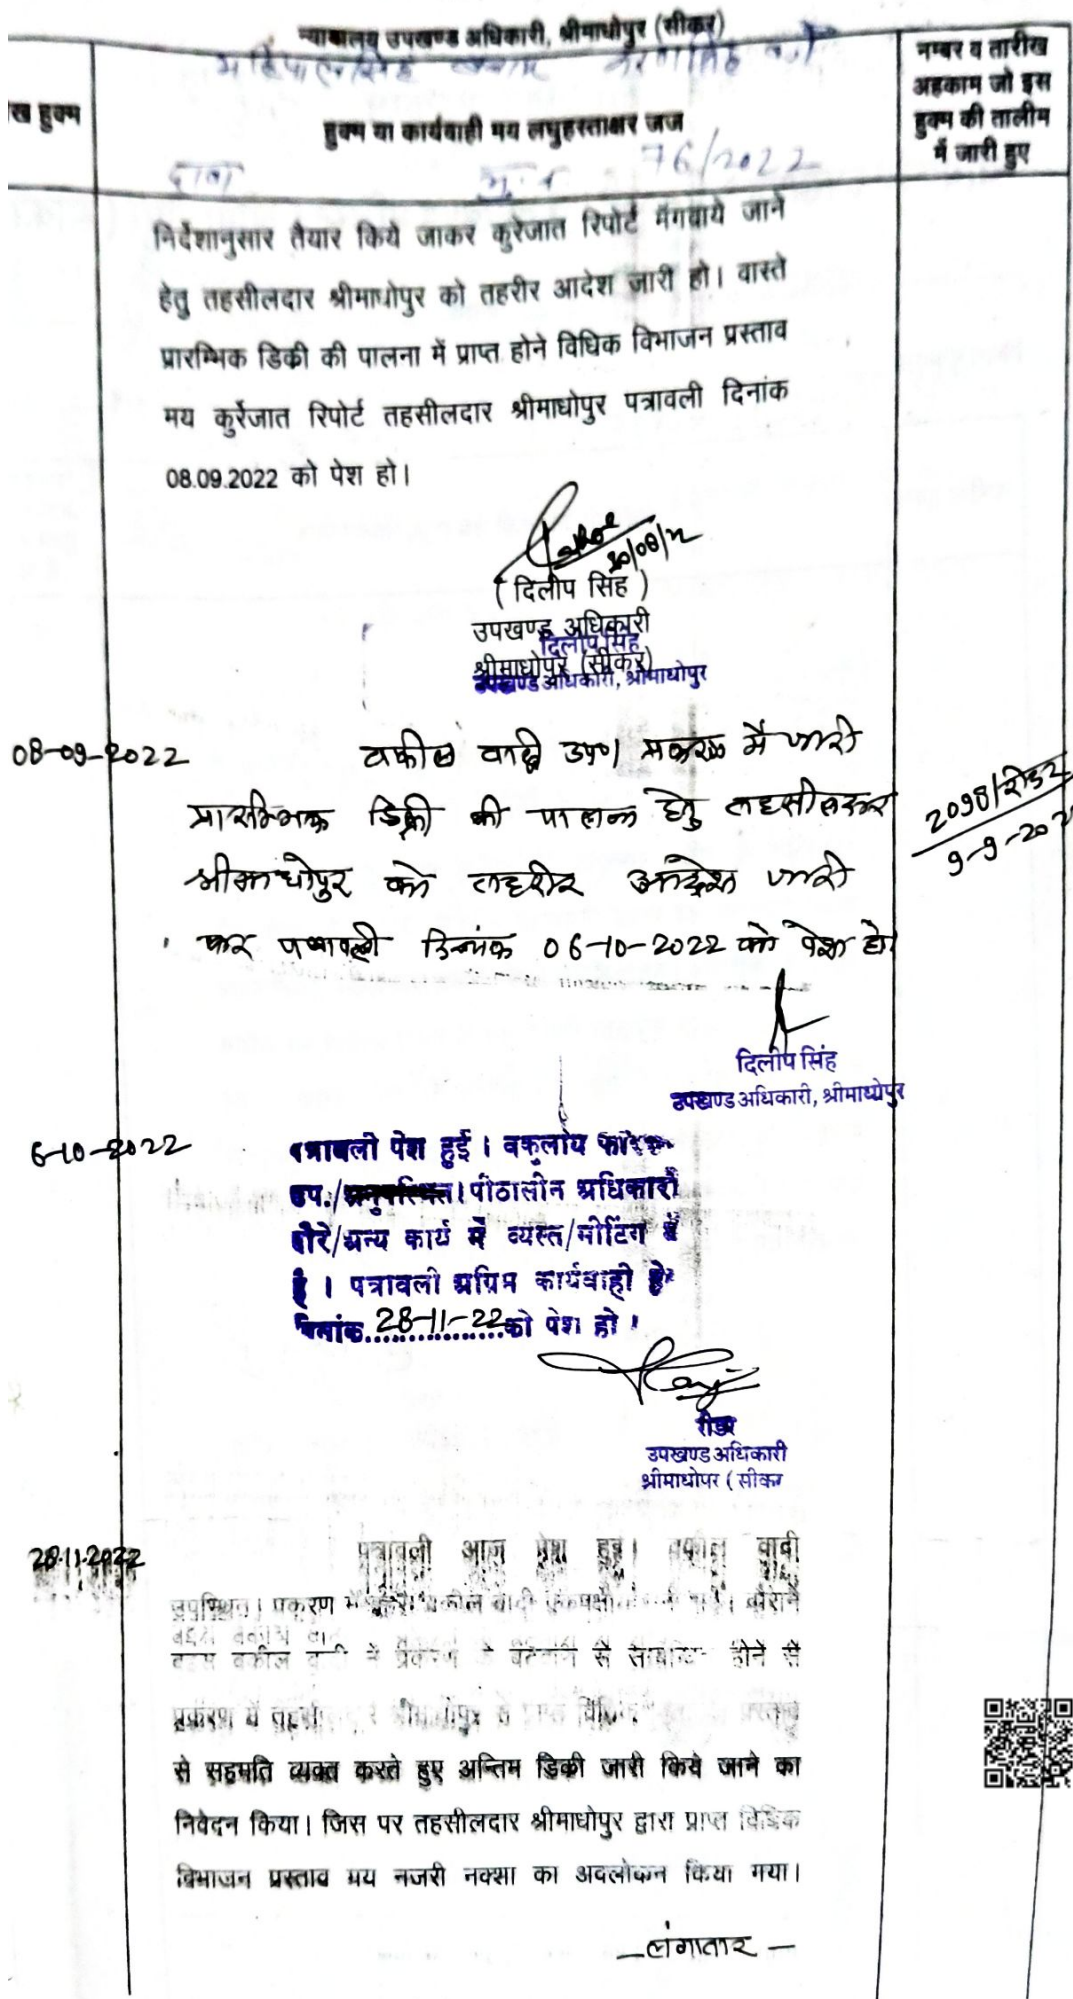 न्यायालय उपखण्ड अधिकारी, श्रीमाधोपुर (सीकर)
महिपालसिंह बनाम
नम्बर व तारीख
अहकाम जो इस
हुक्म की तालीम
में जारी हुए
ख हुक्म
हुक्म या कार्यवाही मय लघुहस्ताक्षर जज
दावा मु.न. 76/2022
निर्देशानुसार तैयार किये जाकर कुरेजात रिपोर्ट मंगवाये जाने
हेतु तहसीलदार श्रीमाधोपुर को तहरीर आदेश जारी हो। वास्ते
प्रारम्भिक डिक्री की पालना में प्राप्त होने विधिक विभाजन प्रस्ताव
मय कुर्रेजात रिपोर्ट तहसीलदार श्रीमाधोपुर पत्रावली दिनांक
08.09.2022 को पेश हो।
( दिलीप सिंह )
उपखण्ड अधिकारी
श्रीमाधोपुर (सीकर)
दिलीप सिंह
उपखण्ड अधिकारी, श्रीमाधोपुर
08-09-2022
वकील वादी उप0। प्रकरण में जारी
प्रारम्भिक डिक्री की पालना हेतु तहसीलदार
श्रीमाधोपुर को तहरीर आदेश जारी
कर पत्रावली दिनांक 06-10-2022 को पेश हो।
2098/रीडर
दिलीप सिंह
उपखण्ड अधिकारी, श्रीमाधोपुर
6-10-2022
पत्रावली पेश हुई। वकुलाय
उप./अनुपस्थित। पीठासीन अधिकारी
दौरे/अन्य कार्य में व्यस्त/मीटिंग में
है। पत्रावली अग्रिम कार्यवाही हेतु
दिनांक 28-11-22 को पेश हो।
रीडर
उपखण्ड अधिकारी
श्रीमाधोपर (सीकर
28.11.2022
पत्रावली आज पेश हुई। वकील वादी
उपस्थित। प्रकरण में वकील वादी दौराने
बहस वकील वादी ने प्रकरण होने से
प्रकरण में श्रीमाधोपुर से प्राप्त प्रस्ताव
से सहमति व्यक्त करते हुए अन्तिम डिक्री जारी किये जाने का
निवेदन किया। जिस पर तहसीलदार श्रीमाधोपुर द्वारा प्राप्त विधिक
विभाजन प्रस्ताव मय नजरी नक्शा का अवलोकन किया गया।
—लगातार—